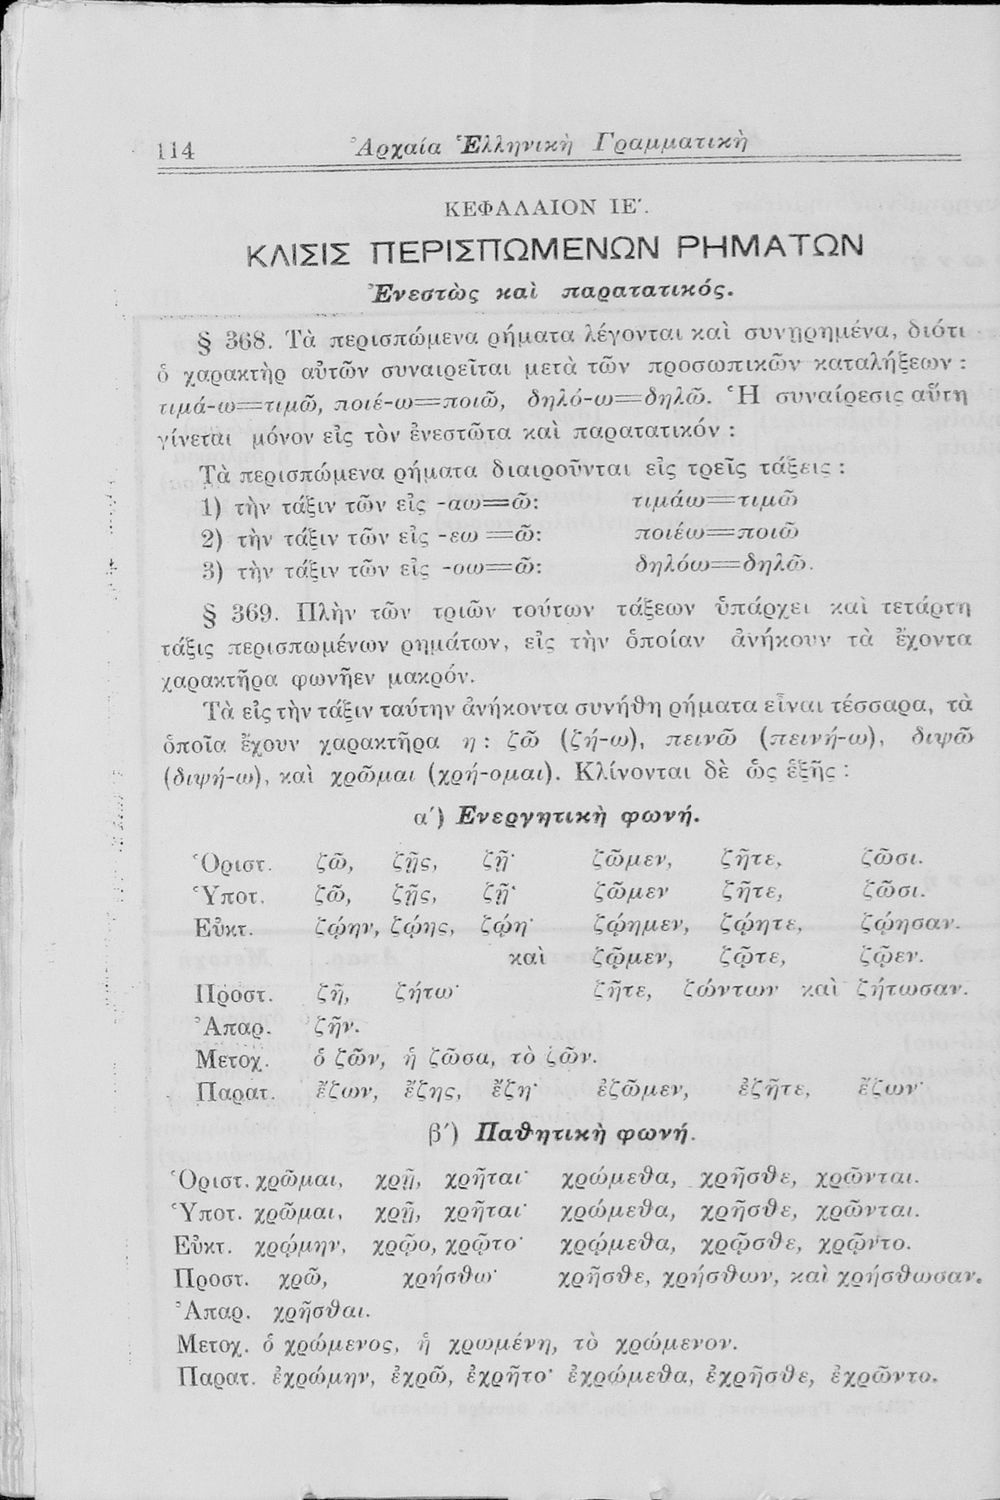 114 Ἀρχαία Ἑλληνικὴ Γραμματικὴ
ΚΕΦΑΛΑΙΟΝ ΙΕ΄.
ΚΛΙΣΙΣ ΠΕΡΙΣΠΩΜΕΝΩΝ ΡΗΜΑΤΩΝ
Ἐνεστὼς καὶ παρατατικός.
§ 368. Τὰ περισπώμενα ρήματα λέγονται καὶ συνῃρημένα, διότι
ὁ χαρακτὴρ αὐτῶν συναιρεῖται μετὰ τῶν προσωπικῶν καταλήξεων :
τιμά-ω=τιμῶ, ποιέ-ω=ποιῶ, δηλό-ω=δηλῶ. Ἡ συναίρεσις αὕτη
γίνεται μόνον εἰς τὸν ἐνεστῶτα καὶ παρατατικόν :
Τὰ περισπώμενα ρήματα διαιροῦνται εἰς τρεῖς τάξεις :
1) τὴν τάξιν τῶν εἰς -αω=ῶ: τιμάω=τιμῶ
2) τὴν τάξιν τῶν εἰς -εω =ῶ: ποιέω=ποιῶ
3) τὴν τάξιν τῶν εἰς -οω=ῶ: δηλόω=δηλῶ.
§ 369. Πλὴν τῶν τριῶν τούτων τάξεων ὑπάρχει καὶ τετάρτη
τάξις περισπωμένων ρημάτων, εἰς τὴν ὁποίαν ἀνήκουν τὰ ἔχοντα
χαρακτῆρα φωνῆεν μακρόν.
Τὰ εἰς τὴν τάξιν ταύτην ἀνήκοντα συνήθη ρήματα εἶναι τέσσαρα, τὰ
ὁποῖα ἔχουν χαρακτῆρα η : ζῶ (ζή-ω), πεινῶ (πεινή-ω), διψῶ
(διψή-ω), καὶ χρῶμαι (χρή-ομαι). Κλίνονται δὲ ὡς ἑξῆς :
α΄) Ενεργητικὴ φωνή.
Ὁριστ. ζῶ, ζῇς, ζῇ· ζῶμεν, ζῆτε, ζῶσι.
Ὑποτ. ζῶ, ζῇς, ζῇ· ζῶμεν ζῆτε, ζῶσι.
Εὐκτ. ζῴην, ζῴης, ζῴη· ζῴημεν, ζῴητε, ζῴησαν.
καὶ ζῷμεν, ζῷτε, ζῷεν.
Προστ. ζῆ, ζήτω· ζῆτε, ζώντων καὶ ζήτωσαν.
Ἀπαρ. ζῆν.
Μετοχ. ὁ ζῶν, ἡ ζῶσα, τὸ ζῶν.
Παρατ. ἔζων, ἔζης, ἔζη· ἐζῶμεν, ἐζῆτε, ἔζων·
β΄) Παθητικὴ φωνή.
Ὁριστ. χρῶμαι, χρῇ, χρῆται· χρώμεθα, χρῆσθε, χρῶνται.
Ὑποτ. χρῶμαι, χρῇ, χρῆται· χρώμεθα, χρῆσθε, χρῶνται.
Εὐκτ. χρῴμην, χρῷο, χρῷτο· χρῴμεθα, χρῷσθε, χρῷντο.
Προστ. χρῶ, χρήσθω· χρῆσθε, χρήσθων, καὶ χρήσθωσαν.
Ἀπαρ. χρῆσθαι.
Μετοχ. ὁ χρώμενος, ἡ χρωμένη, τὸ χρώμενον.
Παρατ. ἐχρώμην, ἐχρῶ, ἐχρῆτο· ἐχρώμεθα, ἐχρῆσθε, ἐχρῶντο.